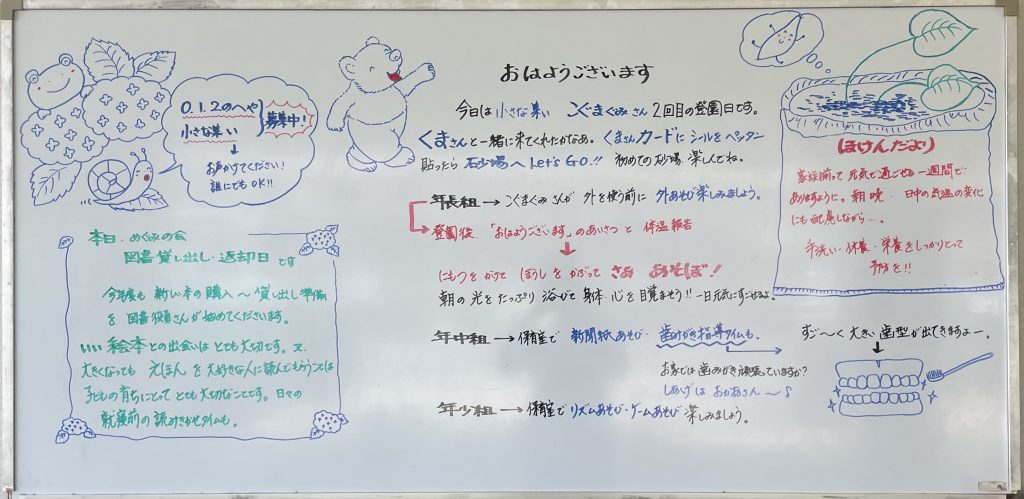 0.1.2のへや
小さな集い
募集中!
↓
お声かけてください!
誰にでもOK!!
本日.めぐみの会
図書貸し出し.返却日です
今年度も新しい本の購入〜貸し出し準備
を図書役員さんが始めてくださいます。
いい絵本との出会いはとても大切です。又、
大きくなってもえほんを大好きな人に読んでもらうことは
子どもの育ちにとってとても大切なことです。日々の
就寝前の読みきかせタイムも。
おはようございます
今日は小さな集いこぐまぐみさん2回目の登園日です。
くまさんと一緒に来てくれたかなぁ。くまさんカードにシールをペッタン
貼ったら砂場へLet's GO.!! 初めての砂場楽しんでね。
年長組→こぐまぐみさんが外を使う前に外あそび楽しみましょう。
登園後.「おはようございます」のあいさつと体温報告
↓
にもつをかけてぼうしをかぶってさぁあそぼ!
朝の光をたっぷり浴びて身体・心を目覚まそう!!一日元気にすごせるよ。
年中組→保育室で新聞紙あそび・歯みがき指導タイムも。
お家では歯みがき頑張っていますか?
しあげはおかあさん〜♪
年少組→保育室でリズムあそび・ゲームあそび楽しみましょう。
ほけんだより
家族揃って元気で過ごせる一週間で
ありますように。朝晩.日中の気温の変化
にも配慮しながら….
手洗い・休養・栄養をしっかりとって
予防を!!
すご〜く大きい歯型が出てきますよー.
↓